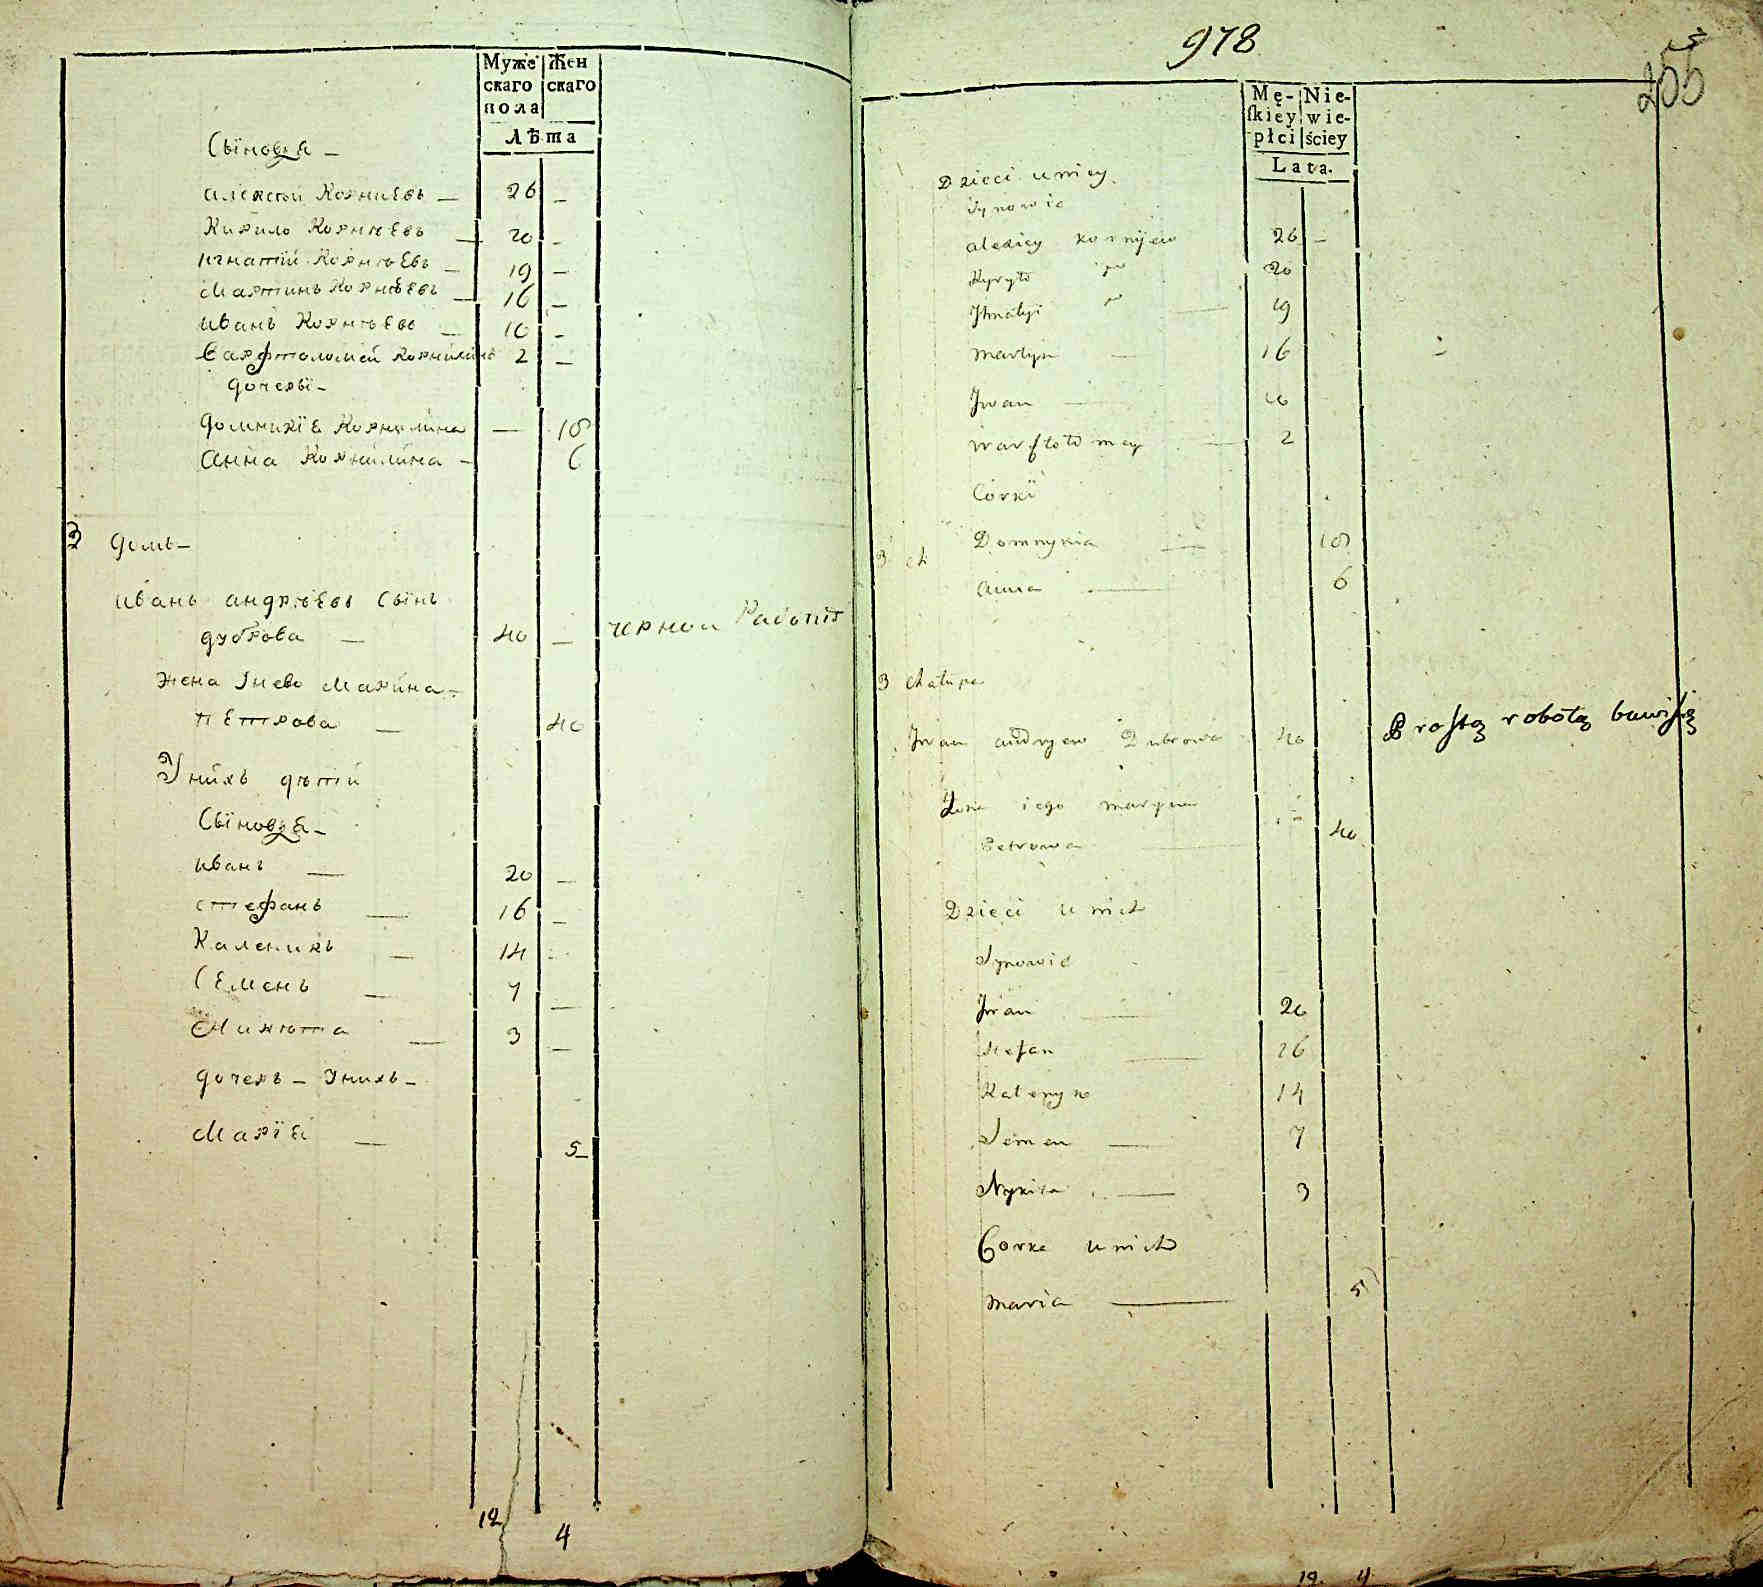 Муже
скаго
пола
Жен
скаго
Лѣта
Сыновья –
Алексѣй Корнѣевъ – 26 –
Кирило Корнѣевъ – 20 –
Игнатiй Корнѣевъ – 19 –
Мартинъ Корнѣевъ – 16 –
Иванъ Корнѣевъ – 10 –
Варфтоломей Корнилинъ 2 –
дочеры –
Домникiе Корнилина – 18
Анна Корнилина – 6
3 домъ –
Иванъ Андрѣевъ сынъ
дуброва – 40 – черной работы
Жена Марина –
Петрова – 40
У нихъ дѣтей
Сыновья –
Иванъ – 20 –
стефанъ – 16 –
Каленикъ – 14 –
Семенъ – 7 –
Микита – 3 –
дочеръ – у нихъ –
Марiя – 5
12 4
978
255
Mę-
ſkiey
płci
Nie-
wie-
ściey
Lata.
Dzieci u nich
Synowie
Alexiey Kornijew 26 –
Kyryło 20
Ihnatyi 19
Martyn – 16
Jwan – 10
Warftołomey – 2
Córki
Domnykia – 18
Anna – 6
3 ch
3 Chałupa
Jwan Andryew Dubrowa 40 Prostą robotą bawi się
Żona iego Maryna
Petrowa – 40
Dzieci u nich
Synowie
Jwan – 20
Stefan – 16
Kalenyk 14
Semen – 7
Nykita – 3
Corka u nich
Maria – 5
12 4